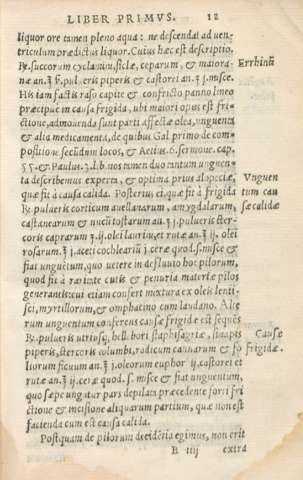 LIBER PRIMVS. 12
liquor ore tamen pleno aqua: ne descendat ad uen-
triculum prædictus liquor. Cuius hæc est descriptio.
℞. succorum cyclamin, siclæ, ceparum, & maiora-
næ an. ℥ ß. pul. eris piperis & castorei an. ʒ j. misce. Errhinū
His iam factis raso capite & confricto panno lineo
præcipuè in causa frigida, ubi maiori opus est fri-
ctione, admouenda sunt parti affectæ olea, unguenta
& alia medicamenta, de quibus Gal. primo de com-
positione secūdum locos, & Aetius. 6. sermone. cap.
55. & Paulus. 3. lib. nos tamen duo tantum unguen-
ta describemus experta, & optima, prius alopeciæ, Vnguen
quæ fit à causa calida. Posterius ei, quæ fit à frigida tum cau
℞. pulueris corticum auellanarum, amygdalarum, sæ calidæ
castanearum & nucū tostarum an. ℥ j. pulueris ster-
coris caprarum ℥ ij. olei laurini, et rutæ an. ℥ ij. olei
rosarum. ℥ j. aceti cochlearīū j. ceræ quod. s. misce &
fiat unguētum, quo utere in defluuio hoc pilorum,
quod fit à raritate cutis & penuria materiæ pilos
generantis: cui etiam confert mixtura ex oleis lenti-
sci, myrtillorum, & omphatino cum laudano. Alte
rum unguentum conferens causæ frigidæ est sequēs
℞. pulueris utriusq; hellebori staphisagriæ, sinapis Causæ
piperis, stercoris columbi, radicum cannarum & fo frigidæ.
liorum ficuum an. ʒ j. oleorum euphor ij, castorei et
rutæ an. ℥ ij. ceræ quod. s. misce & fiat unguentum,
quo sæpe ungatur pars depilata præcedente forti fri
ctione & incisione aliquarum partium, quæ non est
facienda cum est causa calida.
Postquam de pilorum decidētia egimus, non erit
B iiij extra